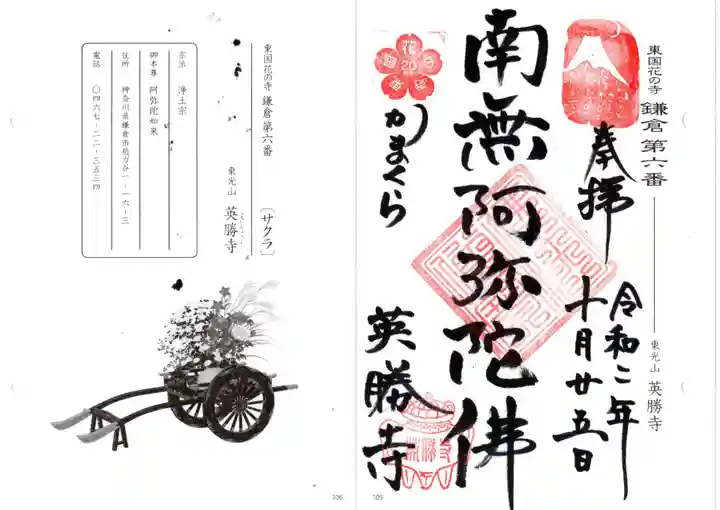 東国花の寺 鎌倉第六番
東光山 英勝寺
奉拝
令和二年
十月廿五日
南無阿弥陀佛
かまくら
英勝寺
花
20
105
東国花の寺 鎌倉第六番
〔サクラ〕
東光山 英勝寺
えいしょうじ
宗派 浄土宗
御本尊 阿弥陀如来
住所 神奈川県鎌倉市扇ガ谷一-一六-三
電話 〇四六七-二二-三五三四
106